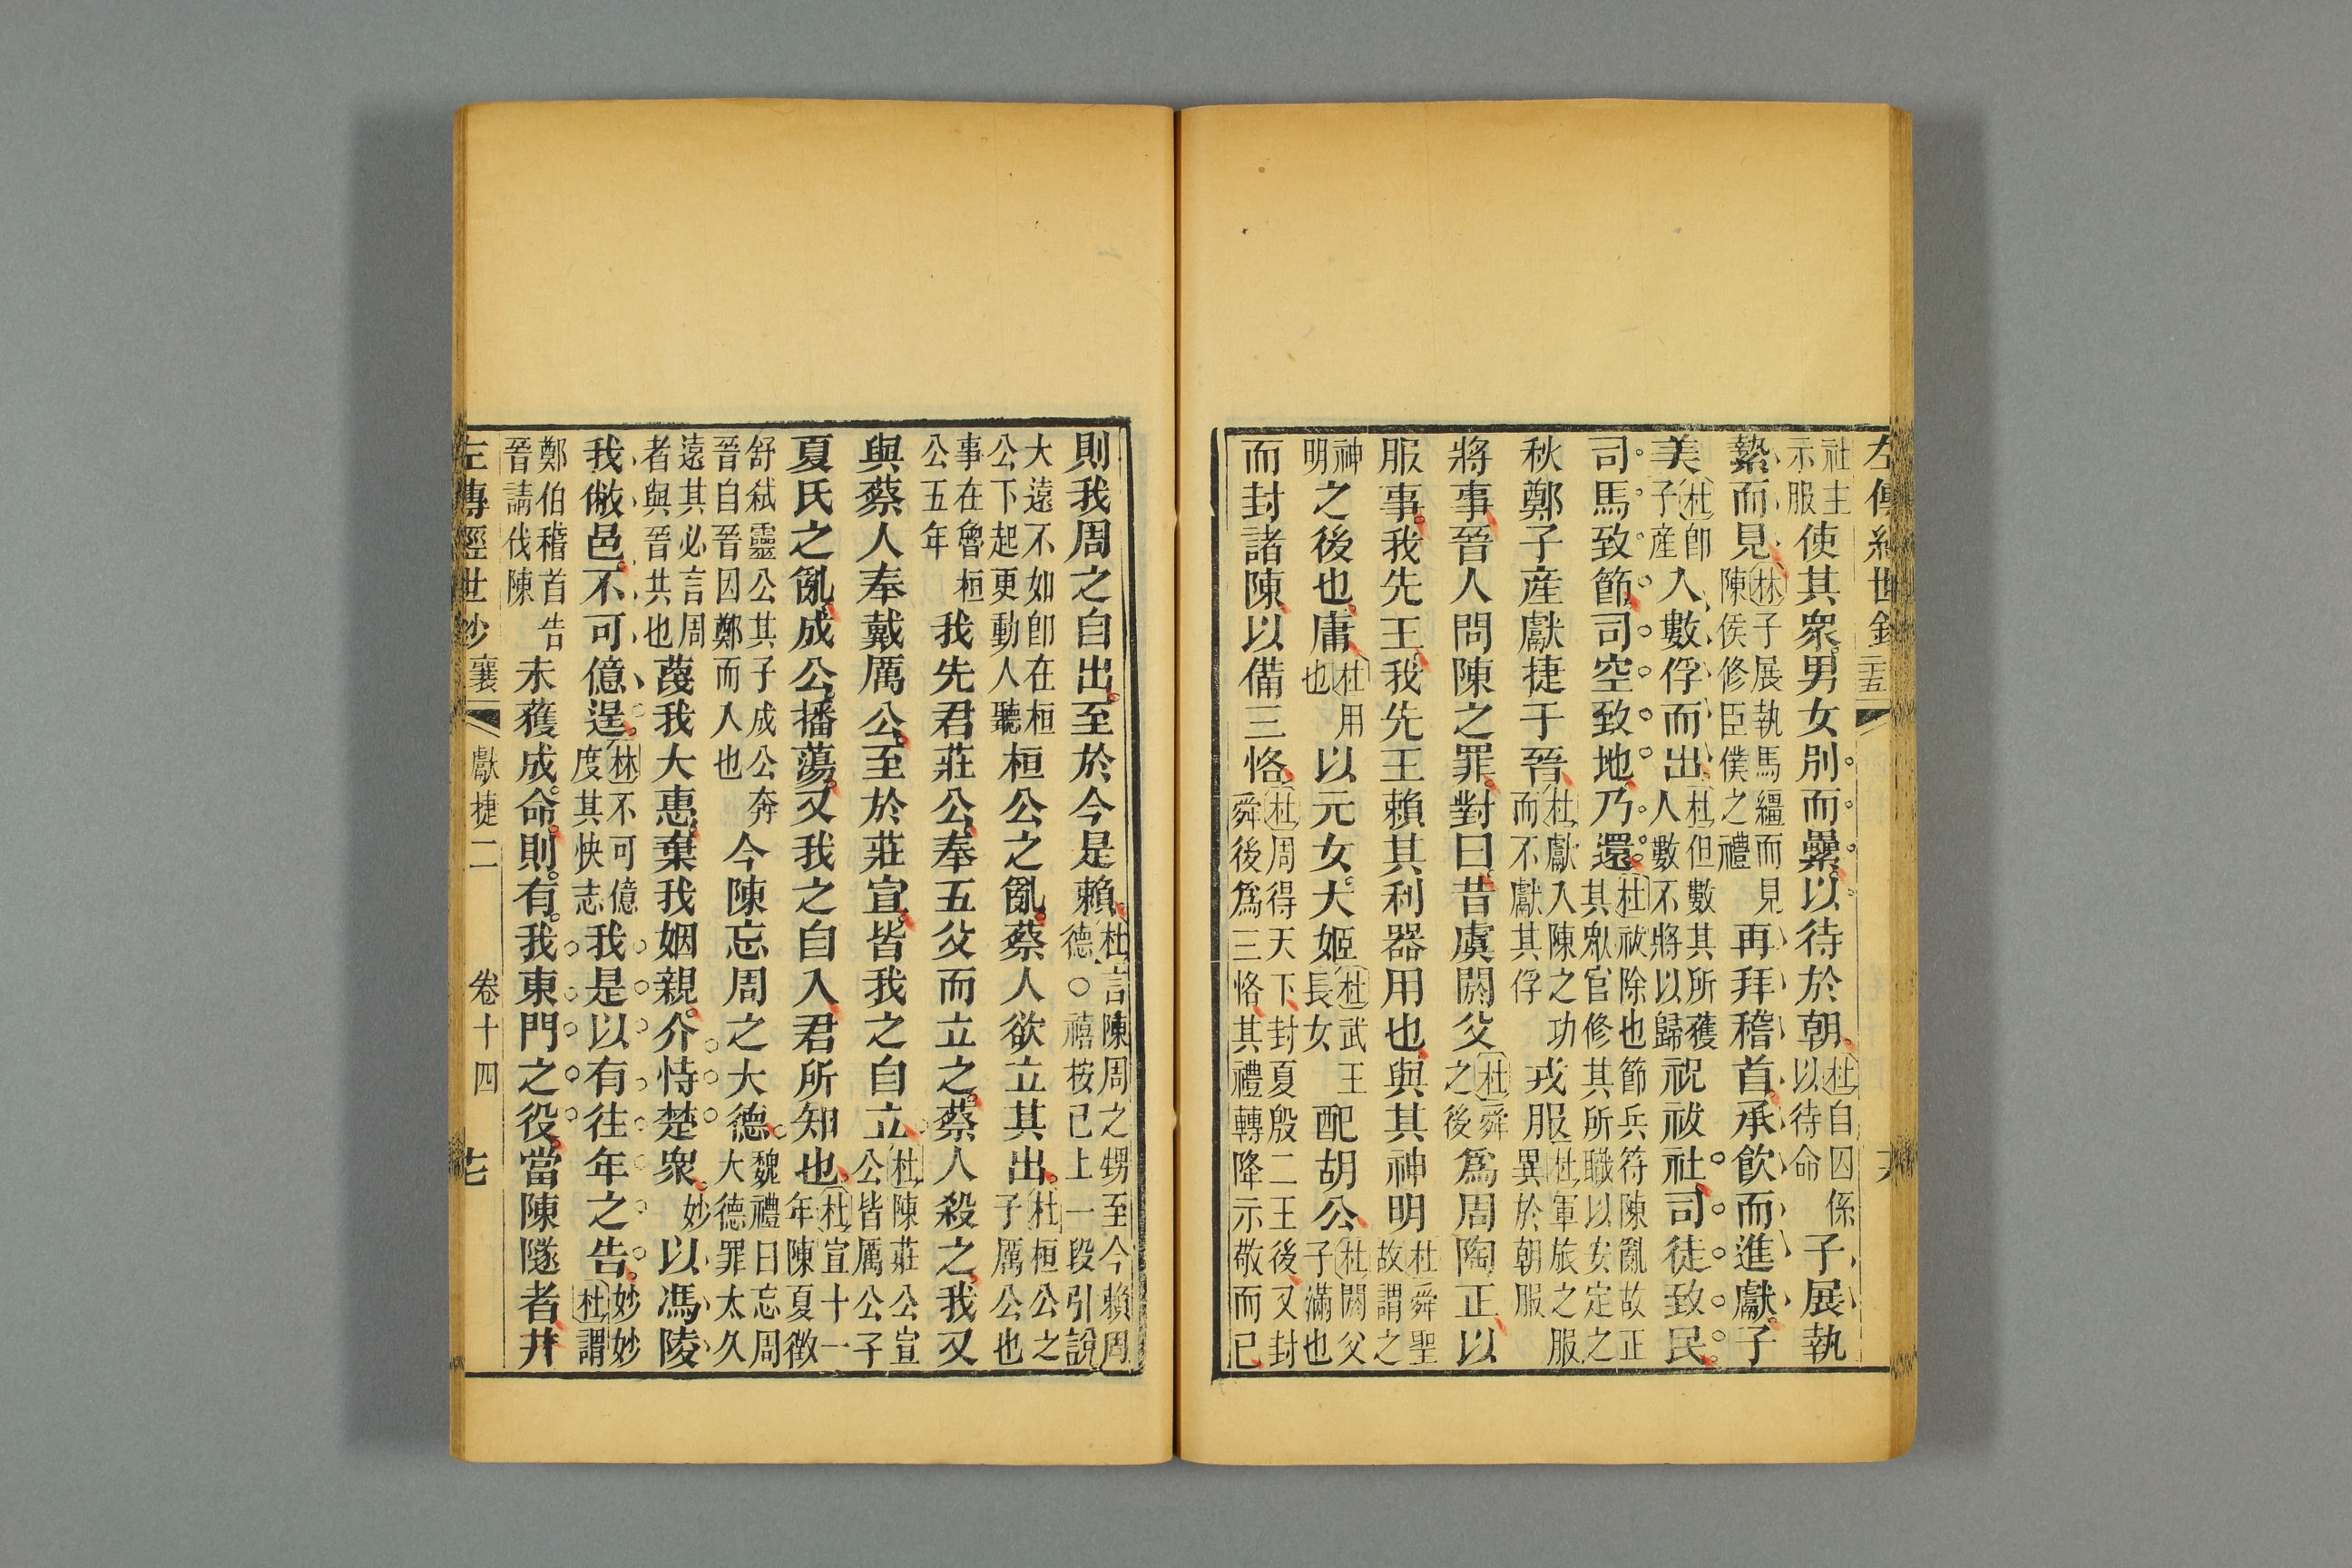 左傳經世鈔 二十五
社主示服使其衆男女別而纍以待於朝杜自囚係以待命子展執
縶而見林子展執馬繮而見陳侯修臣僕之禮再拜稽首承飲而進獻子
美杜卽子産入數俘而出杜但數其所獲人數不將以歸祝祓社司徒致民
司馬致節司空致地乃還杜祓除也節兵符陳亂故正其衆官修其所職以安定之
秋鄭子産獻捷于晉杜獻入陳之功而不獻其俘戎服杜軍旅之服異於朝服
將事晉人問陳之罪對曰昔虞閼父杜舜之後爲周陶正以
服事我先王我先王賴其利器用也與其神明杜舜聖故謂之
神明之後也庸杜用也以元女大姬杜武王長女配胡公杜閼父子滿也
而封諸陳以備三恪杜周得天下封夏殷二王後又封舜後爲三恪其禮轉降示敬而已
則我周之自出至於今是賴杜言陳周之甥至今賴周德○禧按已上一段引說
大遠不如卽在桓公下起更動人聽桓公之亂蔡人欲立其出杜桓公之子厲公也
事在魯桓公五年我先君莊公奉五父而立之蔡人殺之我又
與蔡人奉戴厲公至於莊宣皆我之自立杜陳莊公宣公皆厲公子
夏氏之亂成公播蕩又我之自入君所知也杜宣十一年陳夏徵
舒弑靈公其子成公奔晉自晉因鄭而入也今陳忘周之大德魏禮曰忘周大德罪太久
遠其必言周者與晉共也蔑我大惠棄我姻親介恃楚衆妙以馮陵
我敝邑不可億逞林不可億度其快志我是以有往年之告妙妙杜謂
鄭伯稽首告晉請伐陳未獲成命則有我東門之役當陳隧者井
左傳經世鈔 襄 獻捷二 卷十四 十七